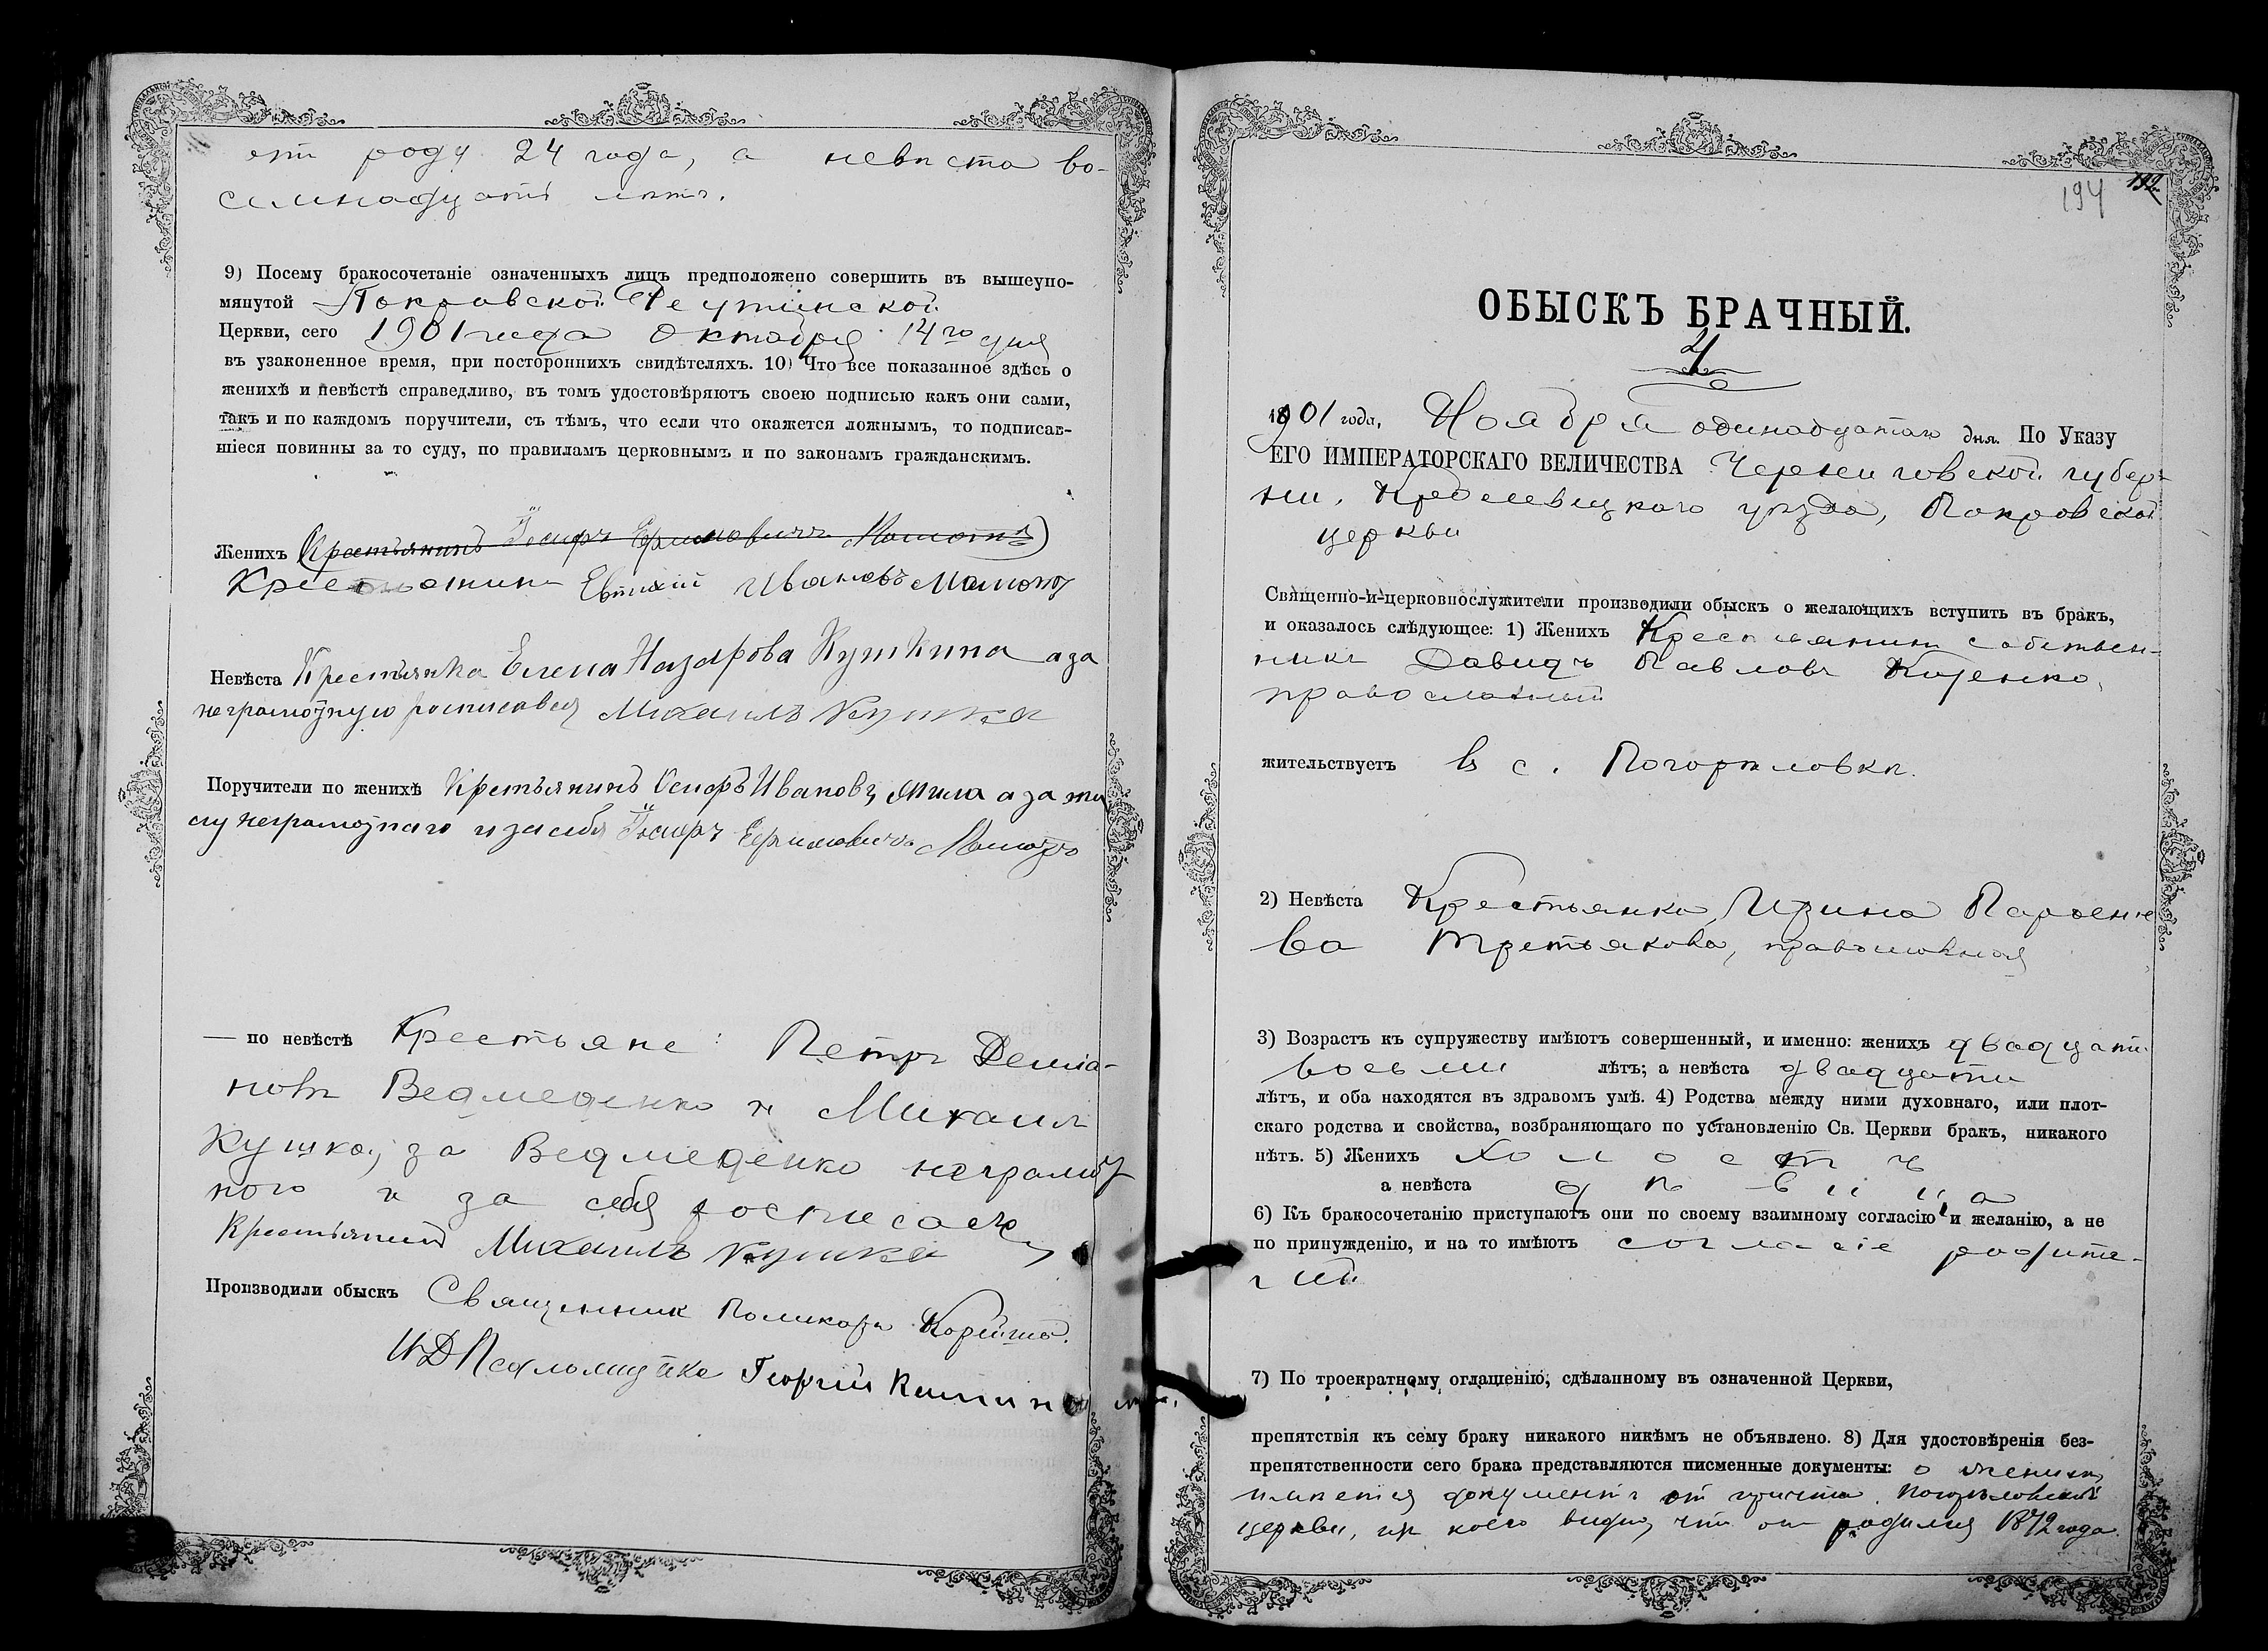 роду 24 года, а невѣста во-
семнадцать лѣтъ.
9) Посему бракосочетаніе означенныхъ лицъ предположено совершить въ вышеупо-
мянутой Покровской
Церкви, сего 1901 года Октября 14го дня
въ узаконенное время, при постороннихъ свидѣтеляхъ. 10) Что все показанное здѣсь о
женихѣ и невѣстѣ справедливо, въ томъ удостовѣряютъ своею подписью какъ они сами,
такъ и по каждомъ поручители, съ тѣмъ, что если что окажется ложнымъ, то подписав-
шіеся повинны за то суду, по правиламъ церковнымъ и по законамъ гражданскимъ.
Женихъ (Крестьянинъ
Крестьянинъ Евтихій Ивановъ
Невѣста Крестьянка Елена Назарова Кушкина а за
неграмотную росписався Михаилъ Кушка
Поручители по женихѣ Крестьянинъ Іосифъ Ивановъ а за
неграмотнаго и за себя Іосифъ Ефимовичъ
— по невѣстѣ Крестьяне: Петръ Демья-
новъ Ведмеденко и Михаил
Кушка, за Ведмеденко неграмот
ного и за себя росписался
Крестьянинъ Михаилъ Кушка
Производили обыскъ Священник Поликарп
И Д Псаломщика Георгій
194 192
ОБЫСКЪ БРАЧНЫЙ.
1901 года, Ноября одинадцатаго дня. По Указу
ЕГО ИМПЕРАТОРСКАГО ВЕЛИЧЕСТВА Черниговской губер-
ніи, Кролевецкаго уѣзда, Покровской
церкви
Священно-и-церковнослужители производили обыскъ о желающихъ вступить въ бракъ,
и оказалось слѣдующее: 1) Женихъ Крестьянинъ собствен-
никъ Давидъ Павловъ
православный
жительствуетъ в с. Погорѣловкѣ.
2) Невѣста Крестьянка, Ирина Парѳенье
ва Третьякова, православная
3) Возрастъ къ супружеству имѣютъ совершенный, и именно: женихъ двадцати
восьми лѣтъ; а невѣста двадцати
лѣтъ, и оба находятся въ здравомъ умѣ. 4) Родства между ними духовнаго, или плот-
скаго родства и свойства, возбраняющаго по установленію Св. Церкви бракъ, никакого
нѣтъ. 5) Женихъ холостъ
а невѣста дѣвица
6) Къ бракосочетанію приступаютъ они по своему взаимному согласію и желанію, а не
по принужденію, и на то имѣютъ согласіе родите-
лей.
7) По троекратному оглашенію, сдѣланному въ означенной Церкви,
препятствія къ сему браку никакого никѣмъ не объявлено. 8) Для удостовѣренія без-
препятственности сего брака представляются писменные документы: о женихѣ
имѣется документъ от причта Погорѣловской
церкви, из коего видно, что он родился 1872 года.